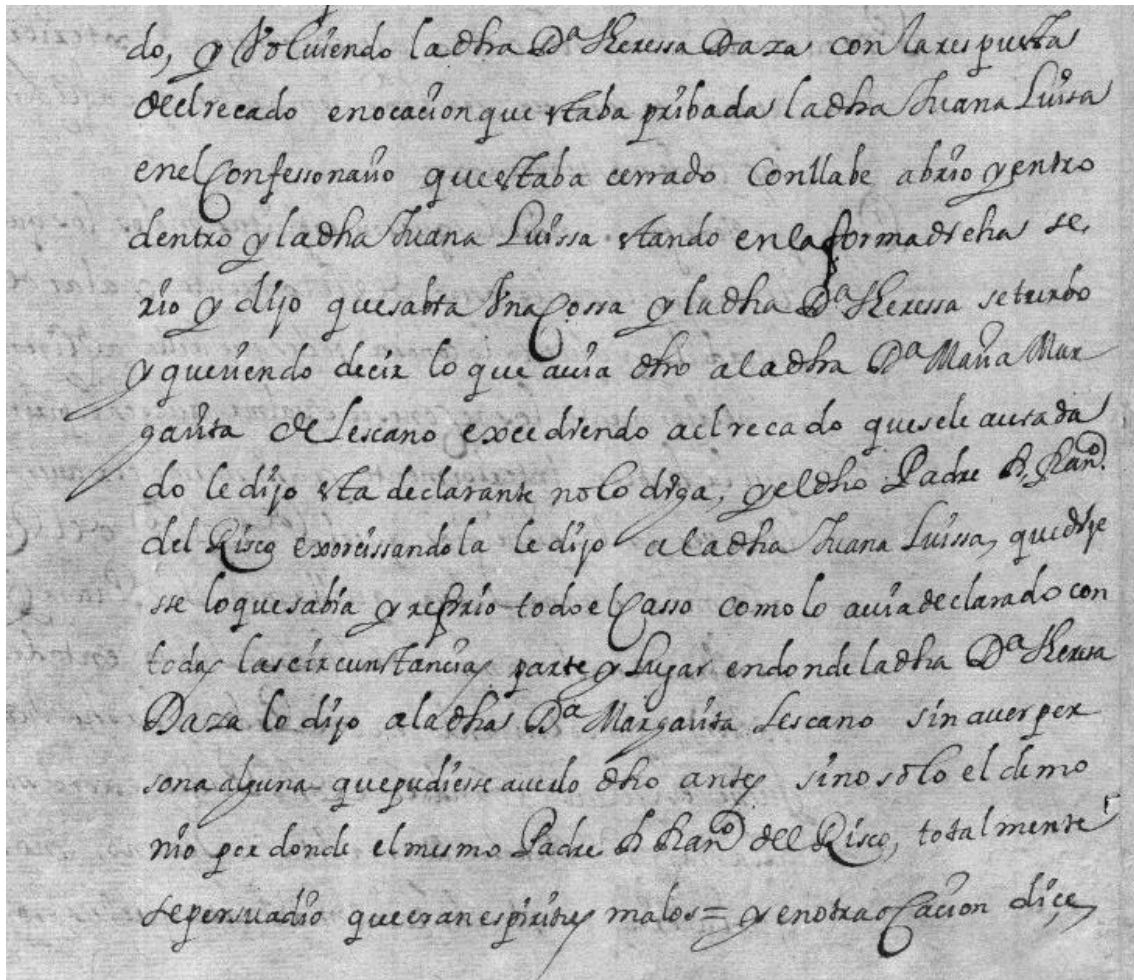 do, y Volviendo la dha Dª Theressa Daza con la respuesta
del recado en ocacion que staba pribada la dha Juana Luisa
en el Confessonario que estaba cerrado Con llabe abrio y entro
dentro y la dha Juana Luissa stando en la forma dicha se
rio y dijo que sabia Vna Cossa y la dha Dª Theressa se turbo
y queriendo decir lo que auia dho a la dha Dª Maria Mar
garita de Lescano excediendo del recado que se le auia da
do le dijo sta declarante no lo diga, y el dho Padre fr. Franº.
del Risco exorcissandola le dijo a la dha Juana Luissa, que dije
sse lo que sabia y refirio todo el Casso como lo auia declarado con
todas las circunstancias parte y lugar en donde la dha Dª Theresa
Daza lo dijo a la dha Dª Margarita Lescano sin auer per
sona alguna que pudiesse auerlo dho antes sino solo el demo
nio por donde el mesmo Padre fr Franº del Risco, totalmente
se persuadio que eran espiritus malos = y en otra oCacion dice